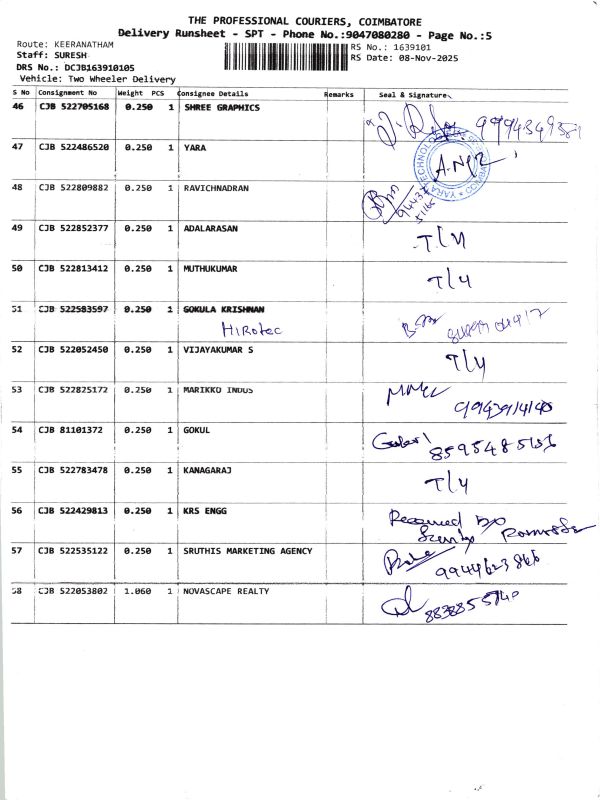 THE PROFESSIONAL COURIERS, COIMBATORE
Delivery Runsheet - SPT - Phone No.:9047080280 - Page No.:5
Route: KEERANATHAM
RS No.: 1639101
Staff: SURESH
RS Date: 08-Nov-2025
DRS No.: DCJB163910105
Vehicle: Two Wheeler Delivery
S No Consignment No Weight PCS Consignee Details Remarks Seal & Signature
46 CJB 522705168 0.250 1 SHREE GRAPHICS
47 CJB 522486520 0.250 1 YARA
48 CJB 522809882 0.250 1 RAVICHNADRAN
49 CJB 522852377 0.250 1 ADALARASAN
50 CJB 522813412 0.250 1 MUTHUKUMAR T/4
51 CJB 522583597 0.250 1 GOKULA KRISHNAN
Hirotec
52 CJB 522052450 0.250 1 VIJAYAKUMAR S T/4
53 CJB 522825172 0.250 1 MARIKKO INDUS
54 CJB 81101372 0.250 1 GOKUL
55 CJB 522783478 0.250 1 KANAGARAJ T/4
56 CJB 522429813 0.250 1 KRS ENGG
57 CJB 522535122 0.250 1 SRUTHIS MARKETING AGENCY
58 CJB 522053802 1.060 1 NOVASCAPE REALTY